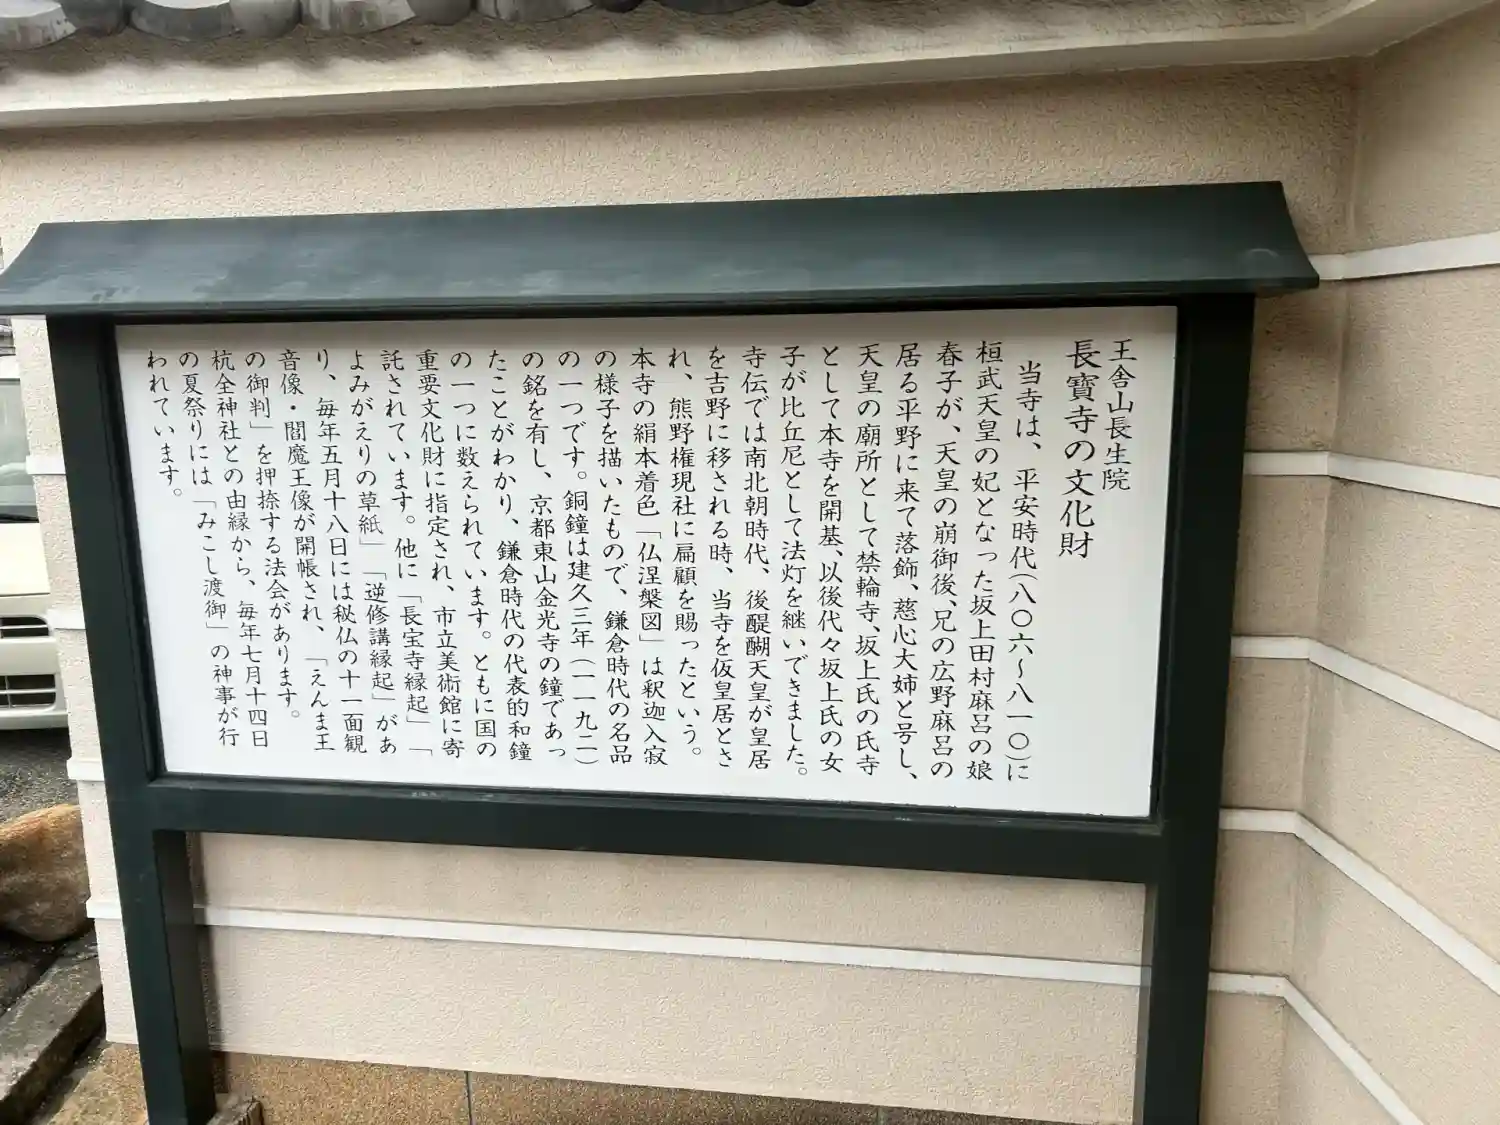 王舎山長生院
長寶寺の文化財
当寺は、平安時代(八〇六〜八一〇)に
桓武天皇の妃となった坂上田村麻呂の娘
春子が、天皇の崩御後、兄の広野麻呂の
居る平野に来て落飾、慈心大姉と号し、
天皇の廟所として禁輪寺、坂上氏の氏寺
として本寺を開基、以後代々坂上氏の女
子が比丘尼として法灯を継いできました。
寺伝では南北朝時代、後醍醐天皇が皇居
を吉野に移される時、当寺を仮皇居とさ
れ、熊野権現社に扁額を賜ったという。
本寺の絹本着色「仏涅槃図」は釈迦入寂
の様子を描いたもので、鎌倉時代の名品
の一つです。銅鐘は建久三年(一一九二)
の銘を有し、京都東山金光寺の鐘であっ
たことがわかり、鎌倉時代の代表的和鐘
の一つに数えられています。ともに国の
重要文化財に指定され、市立美術館に寄
託されています。他に「長宝寺縁起」「
よみがえりの草紙」「逆修講縁起」があ
り、毎年五月十八日には秘仏の十一面観
音像・閻魔王像が開帳され、「えんま王
の御判」を押捺する法会があります。
杭全神社との由縁から、毎年七月十四日
の夏祭りには「みこし渡御」の神事が行
われています。